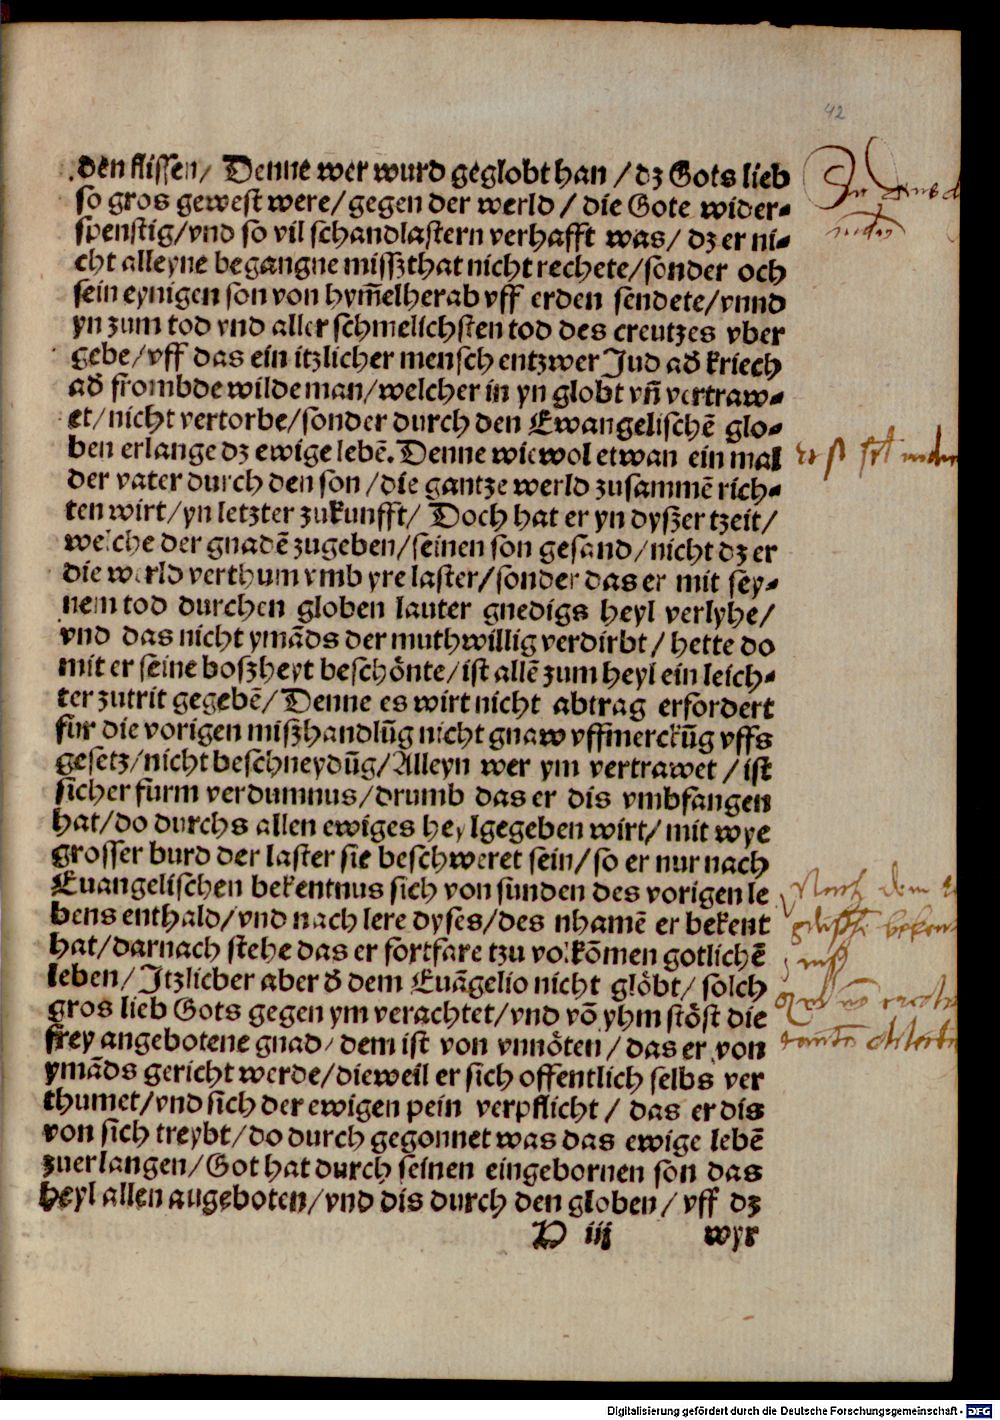 42
den flissen/ Denne wer wurd geglobt han / dz Gots lieb
so gros gewest were/ gegen der werld / die Gote wider⸗
spenstig/ vnd so vil schandlastern verhafft was/ dz er ni⸗
cht alleyne begangne misszthat nicht rechete/ sonder och
sein eynigen son von hym̄elherab vff erden sendete/ vnnd
yn zum tod vnd aller schmelichsten tod des creutzes vber
gebe/ vff das ein itzlicher mensch entzwer Jud ad̄ kriech
ad̄ frombde wilde man/ welcher in yn globt vn̄ vertraw⸗
et/ nicht vertorbe/ sonder durch den Ewangelischē glo⸗
ben erlange dz ewige lebē. Denne wiewol etwan ein mal
der vater durch den son / die gantze werld zusammē rich⸗
ten wirt/ yn letzter zukunfft/ Doch hat er yn dyszer tzeit/
welche der gnadē zugeben/ seinen son gesand/ nicht dz er
die werld verthum vmb yre laster/ sonder das er mit sey⸗
nem tod durchen globen lauter gnedigs heyl verlyhe/
vnd das nicht ymāds der muthwillig verdirbt/ hette do
mit er seine boszheyt beschönte/ ist allē zum heyl ein leich⸗
ter zutrit gegebē/ Denne es wirt nicht abtrag erfordert
fur die vorigen miszhandlūg nicht gnaw vffmerckūg vffs
gesetz/ nicht beschneydūg/ Alleyn wer ym vertrawet / ist
sicher furm verdumnus/ drumb das er dis vmbfangen
hat/ do durchs allen ewiges heylgegeben wirt/ mit wye
grosser burd der laster sie beschweret sein/ so er nur nach
Euangelischen bekentnus sich von sunden des vorigen le
bens enthald/ vnd nach lere dyses/ des nhamē er bekent
hat/ darnach stehe das er fortfare tzu volkōmen gotlichē
leben/ Itzlicher aber d̄ dem Euāgelio nicht glöbt/ solch
gros lieb Gots gegen ym verachtet/ vnd vō yhm stöst die
frey angebotene gnad/ dem ist von vnnöten/ das er von
ymāds gericht werde/ dieweil er sich offentlich selbs ver
thumet/ vnd sich der ewigen pein verpflicht / das er dis
von sich treybt/ do durch gegonnet was das ewige lebē
zuerlangen/ Got hat durch seinen eingebornen son das
heyl allen angeboten/ vnd dis durch den globen/ vff dz
D iij wyr
Nach dem
Digitalisierung gefördert durch die Deutsche Forschungsgemeinschaft - DFG